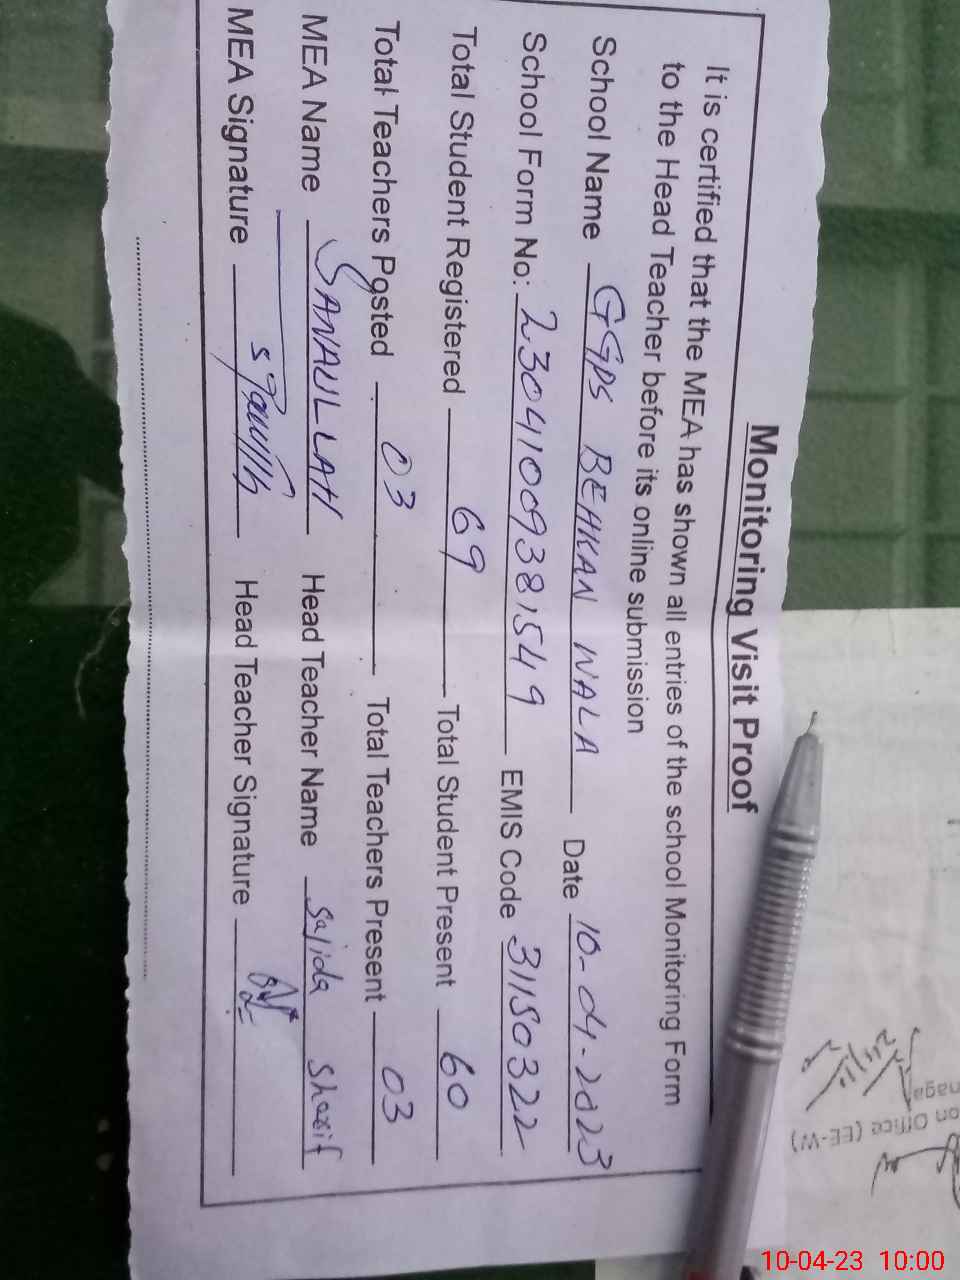 Monitoring Visit Proof
It is certified that the MEA has shown all entries of the school Monitoring Form
to the Head Teacher before its online submission
School Name GGPS BEHKAN WALA Date 10-04-2023
School Form No: 23041009381549 EMIS Code 31150322
Total Student Registered 69 Total Student Present 60
Total Teachers Posted 03 Total Teachers Present 03
MEA Name SANAULLAH Head Teacher Name Sajida Sharif
MEA Signature Head Teacher Signature
on Office (EE-W)
naga
10-04-23 10:00